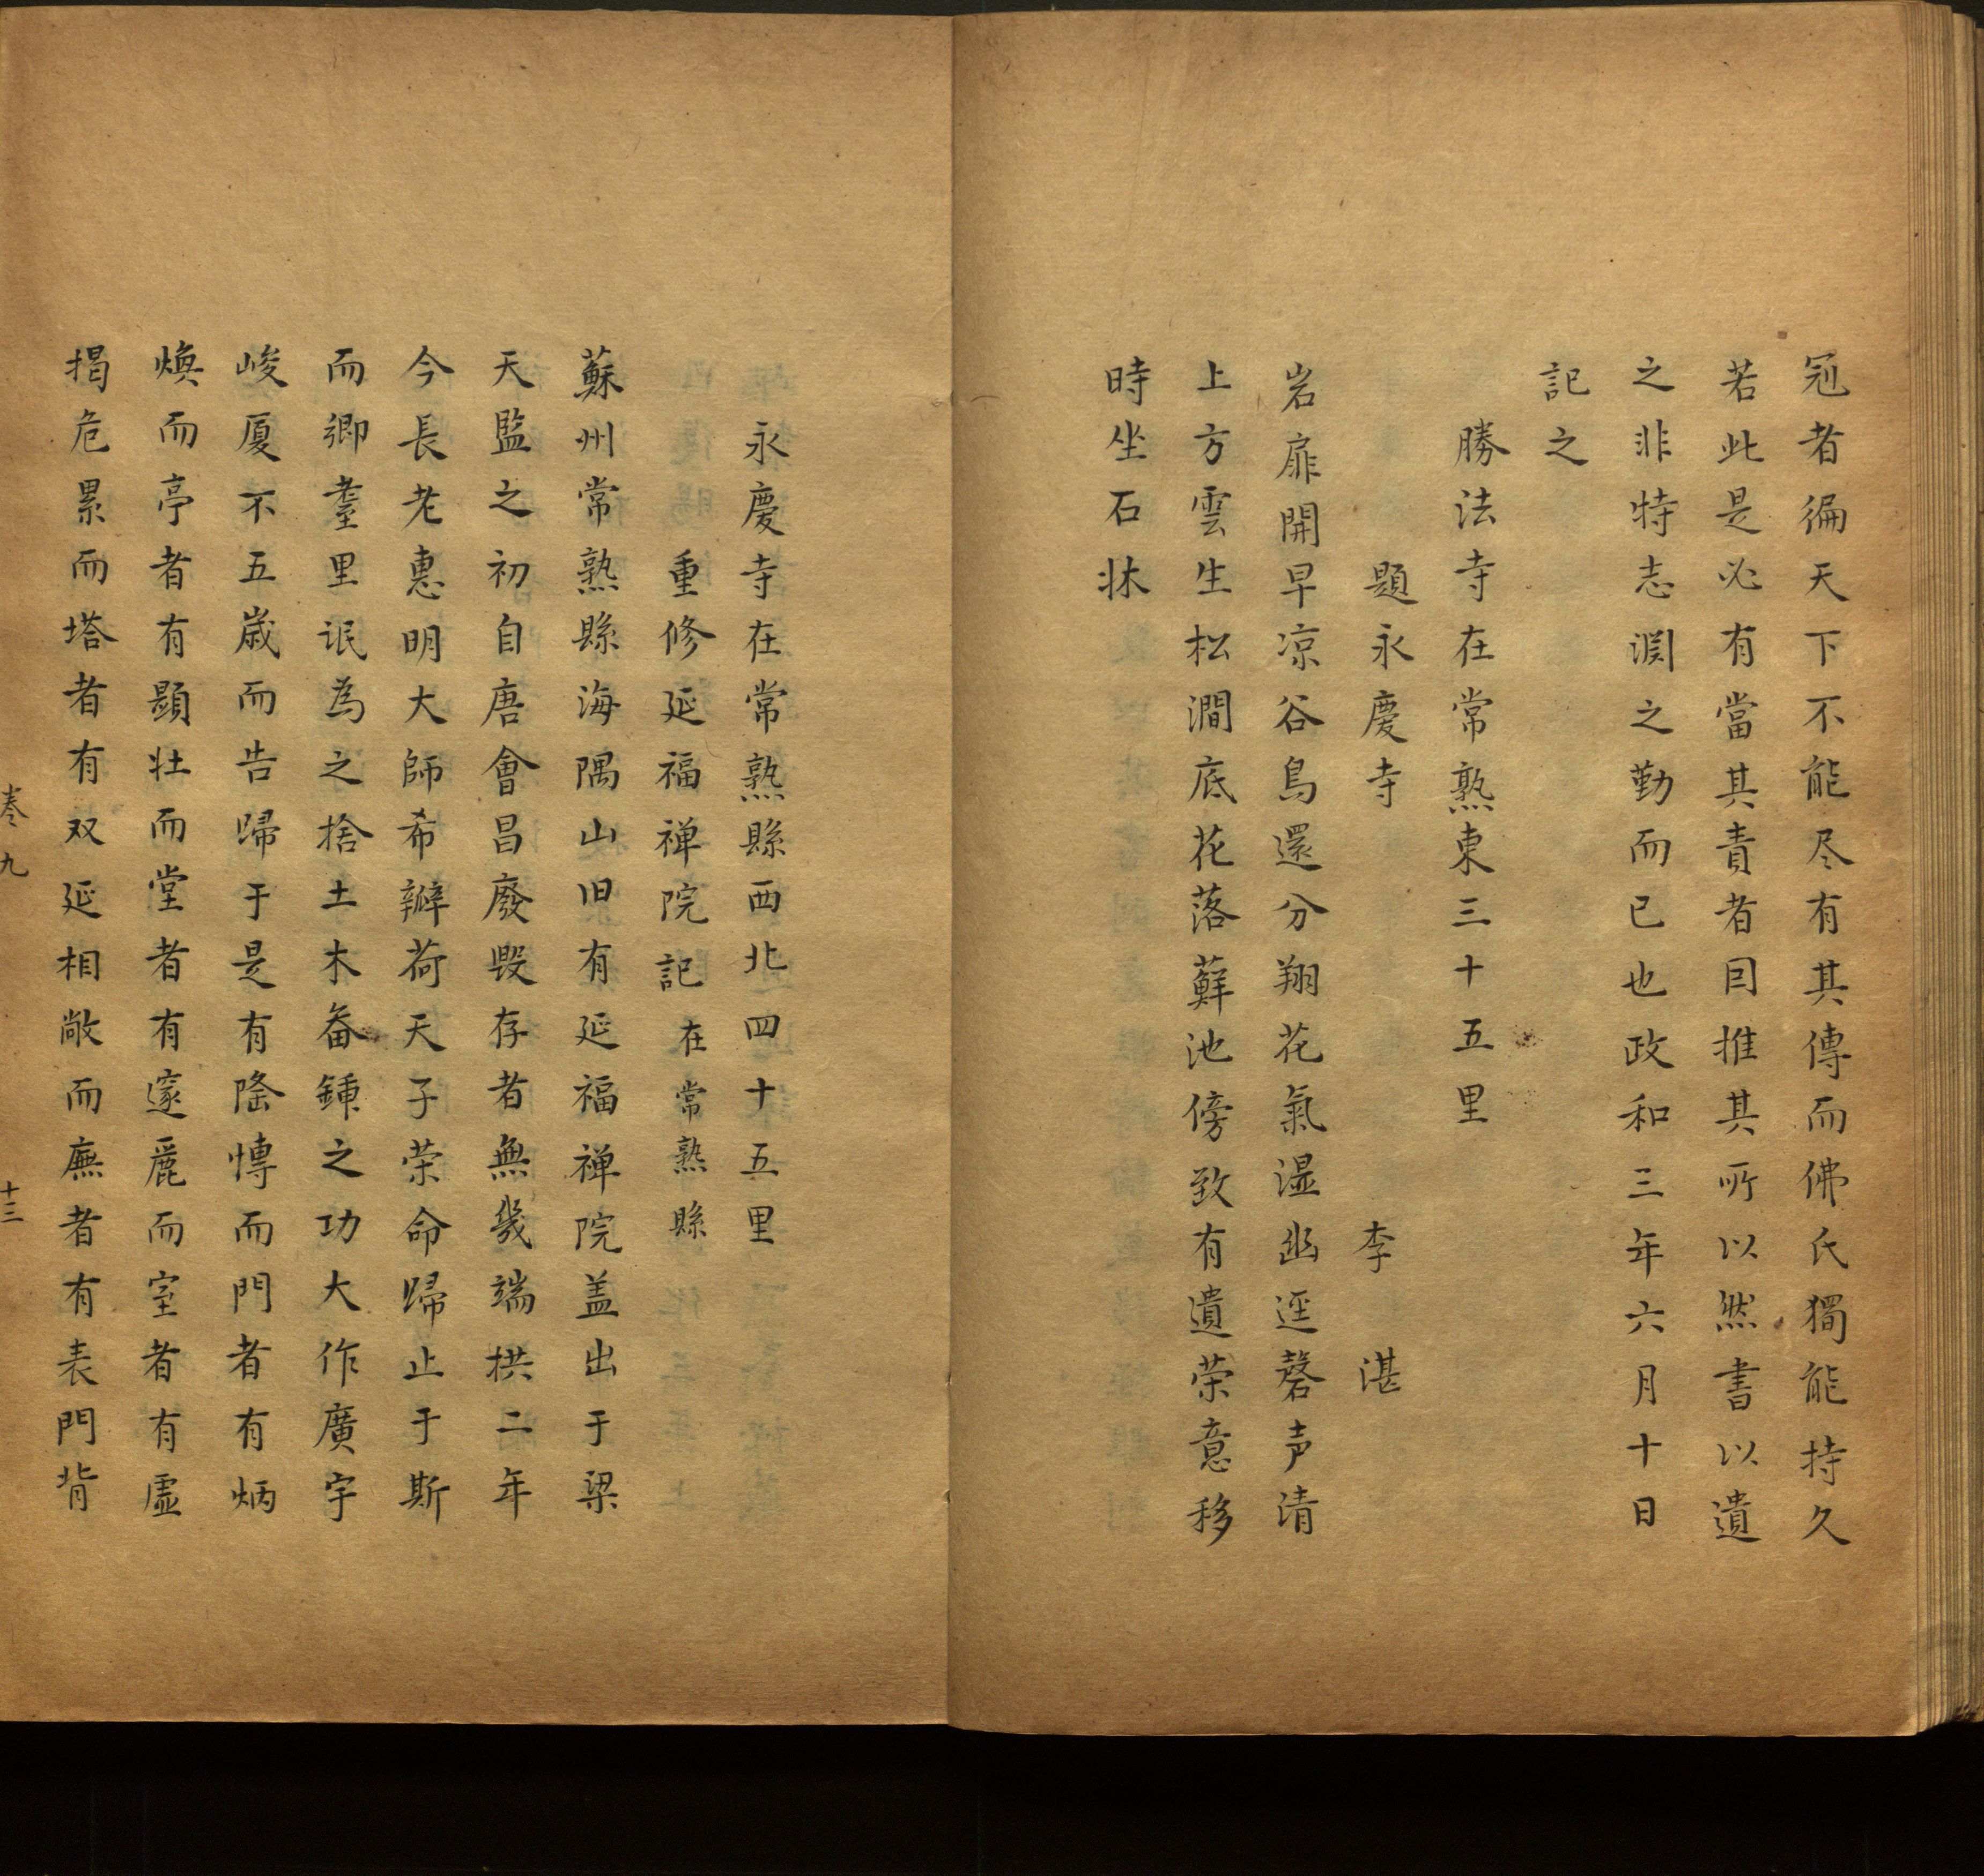 冠者徧天下不能尽有其傳而佛氏獨能持久
若此是必有當其責者因推其所以然書以遺
之非特志淵之勤而已也政和三年六月十日
記之
勝法寺在常熟東三十五里
題永慶寺 李湛
岩扉開早凉谷鳥還分翔花氣湿幽逕磬声清
上方雲生松澗底花落蘚池傍致有遺荣意移
時坐石牀
永慶寺在常熟縣西北四十五里
重修延福禅院記在常熟縣
蘇州常熟縣海隅山旧有延福禅院盖出于梁
天監之初自唐會昌廢毁存者無幾端拱二年
今長老惠明大師希辧荷天子荣命歸止于斯
而卿耋里氓為之捨土木畚鍾之功大作廣宇
峻厦不五歲而告歸于是有隆慱而門者有炳
煥而亭者有顯壮而堂者有邃麗而室者有虛
揭危累而塔者有双延相敞而廡者有表門背
卷九
十三